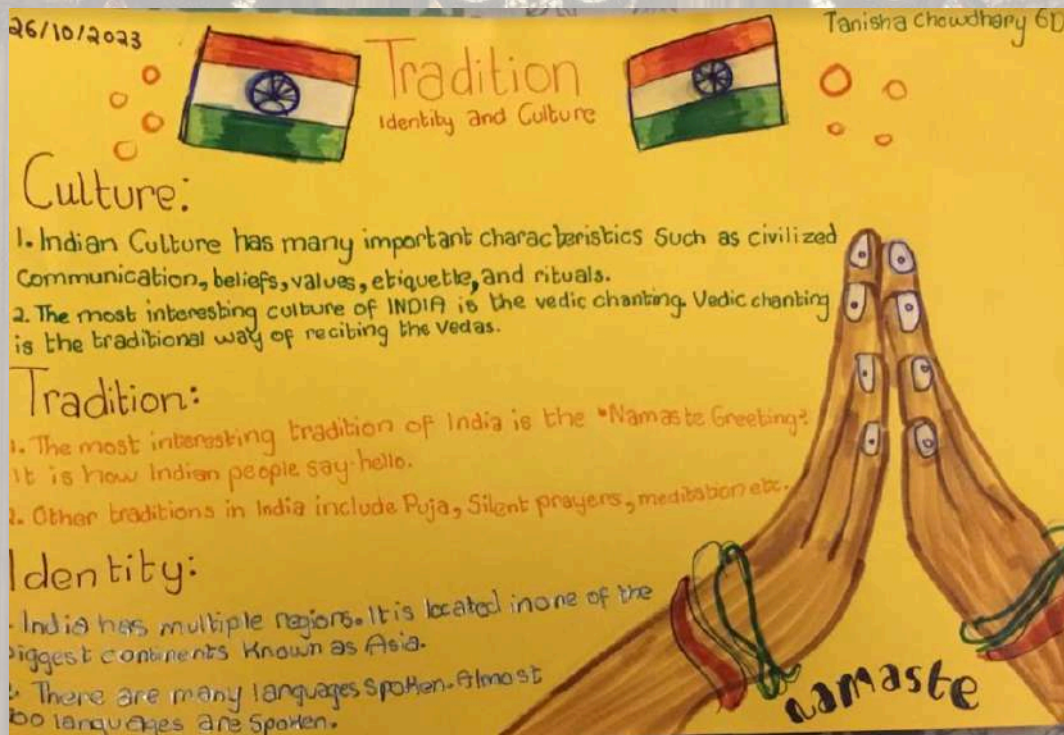 26/10/2023
Tanisha Chowdhary 6D
Tradition
Identity and Culture
Culture:
1. Indian Culture has many important characteristics Such as civilized
Communication, beliefs, values, etiquette, and rituals.
2. The most interesting culture of INDIA is the vedic chanting. Vedic chanting
is the traditional way of reciting the Vedas.
Tradition:
1. The most interesting tradition of India is the "Namaste Greeting".
It is how Indian people say-hello.
2. Other traditions in India include Puja, Silent prayers, meditation etc.
Identity:
India has multiple regions. It is located in one of the
biggest continents Known as Asia.
There are many languages spoken. Almost
languages are Spoken.
Namaste